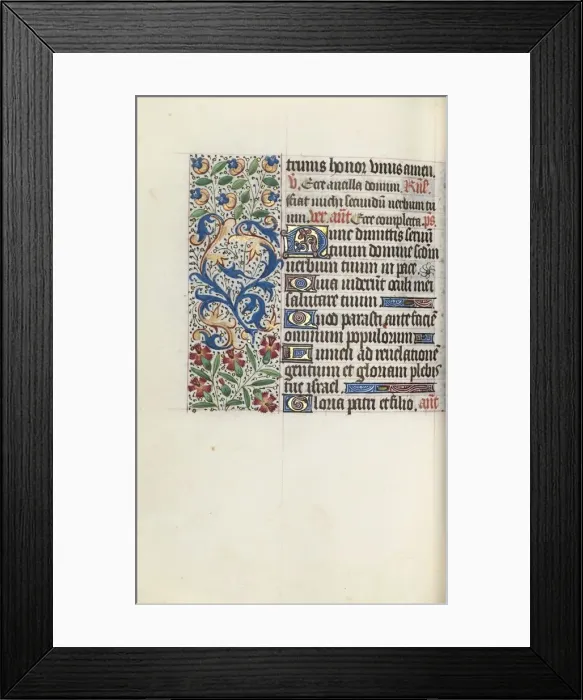 trinus honor unus amen.
V. Ecce ancilla domini. Res.
fiat michi secundū verbum tu
um. ver. añt Ecce completa. ps.
Nunc dimittis servū
tuum domine secun
verbum tuum in pace
Quia viderūt oculi mei
salutare tuum
Quod parasti ante faciē
omnium populorum
Lumen ad revelationē
gentium et gloriam plebis
tue israel.
Gloria patri et filio. añt